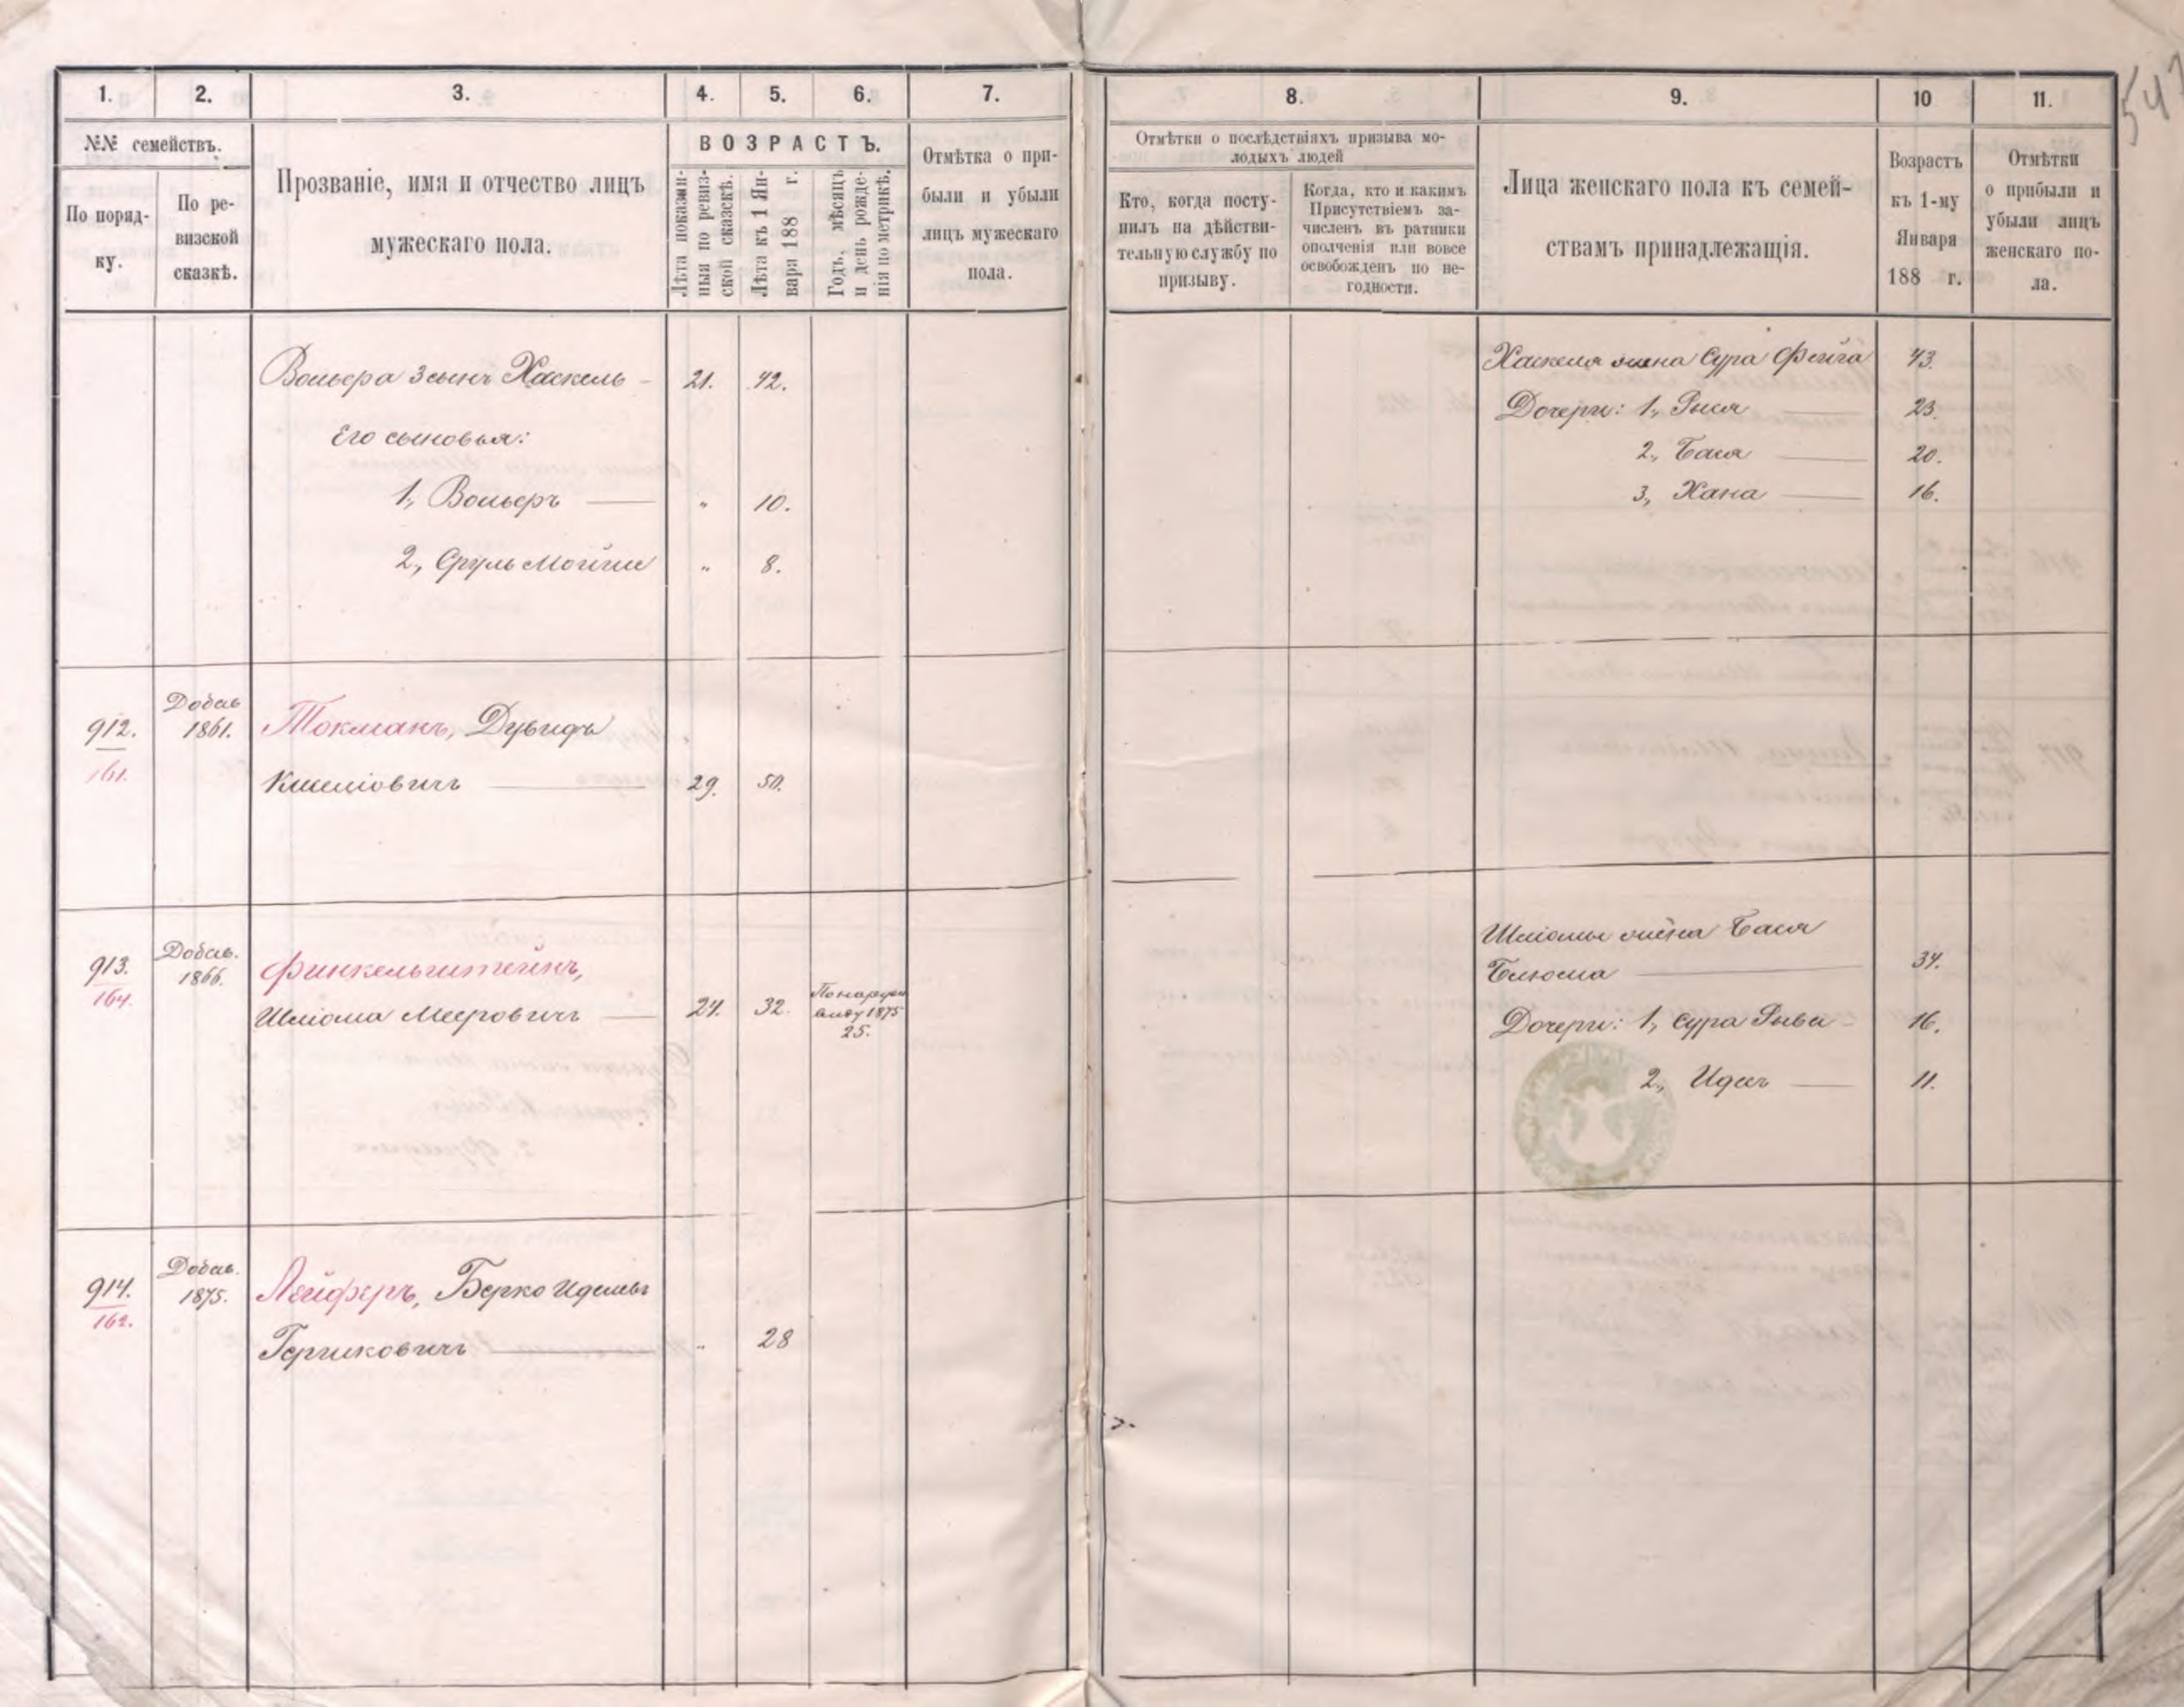 547
1. 2. 3. 4. 5. 6. 7. 8. 9. 10 11.
№№ семействъ.
По поряд-
ку.
По ре-
визской
сказкѣ.
Прозваніе, имя и отчество лицъ
мужескаго пола.
ВОЗРАСТЪ.
Лѣта показан-
ныя по ревиз-
ской сказкѣ.
Лѣта къ 1 Ян-
варя 188 г.
Годъ, мѣсяцъ
и день рожде-
нія по метрикѣ.
Отмѣтка о при-
были и убыли
лицъ мужескаго
пола.
Отмѣтки о послѣдствіяхъ призыва мо-
лодыхъ людей
Кто, когда посту-
пилъ на дѣйстви-
тельную службу по
призыву.
Когда, кто и какимъ
Присутствіемъ за-
численъ въ ратники
ополченія или вовсе
освобожденъ по не-
годности.
Лица женскаго пола къ семей-
ствамъ принадлежащія.
Возрастъ
къ 1-му
Января
188 г.
Отмѣтки
о прибыли и
убыли лицъ
женскаго по-
ла.
Вольфра 3 сынъ Хаскель - 21. 42.
Его сыновья:
1, Вольфръ — " 10.
2, Сруль Мойше " 8.
Хаскеля жена Сура Фейга 43.
Дочери: 1, Рыся — 23.
2, Бася — 20.
3, Хана — 16.
912. Добав
161. 1861. Токманъ, Дувидъ
Кишіовичъ — 29. 50.
913. Добав.
164. 1866. Финкельштейнъ,
Шліома Мееровичъ — 24. 32. По наруж
виду 1875
25.
Шліомы жена Бася
Блюма — 34.
Дочери: 1, Сура Рыва - 16.
2, Идесъ — 11.
914. Добав.
162. 1875. Лейферъ, Берко Идель
Гершковичъ — " 28